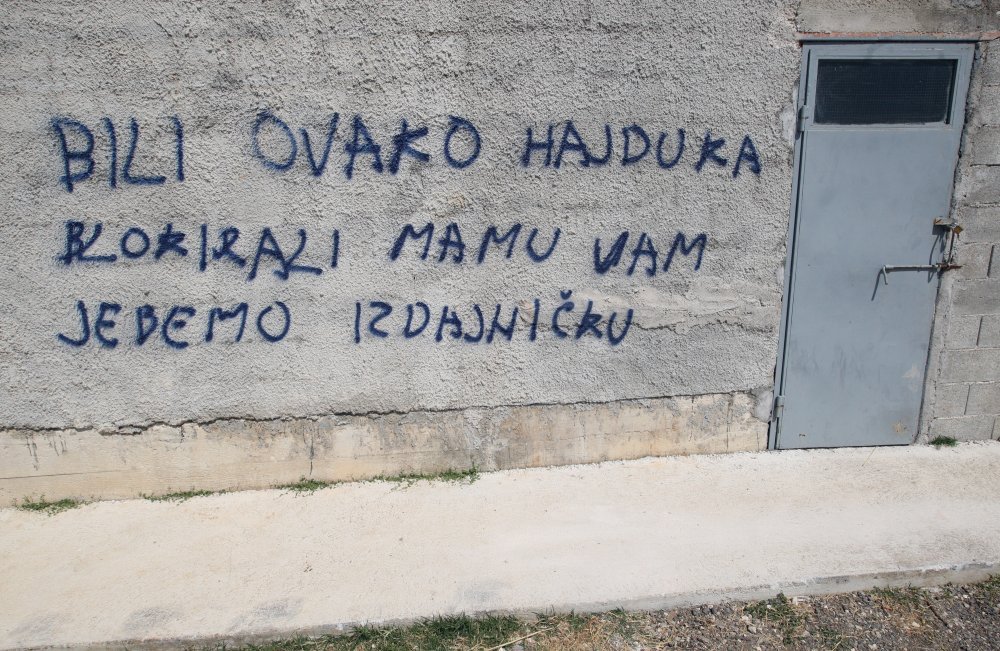 BILI OVAKO HAJDUKA
BLOKIRALI MAMU VAM
JEBEMO IZDAJNIČKU